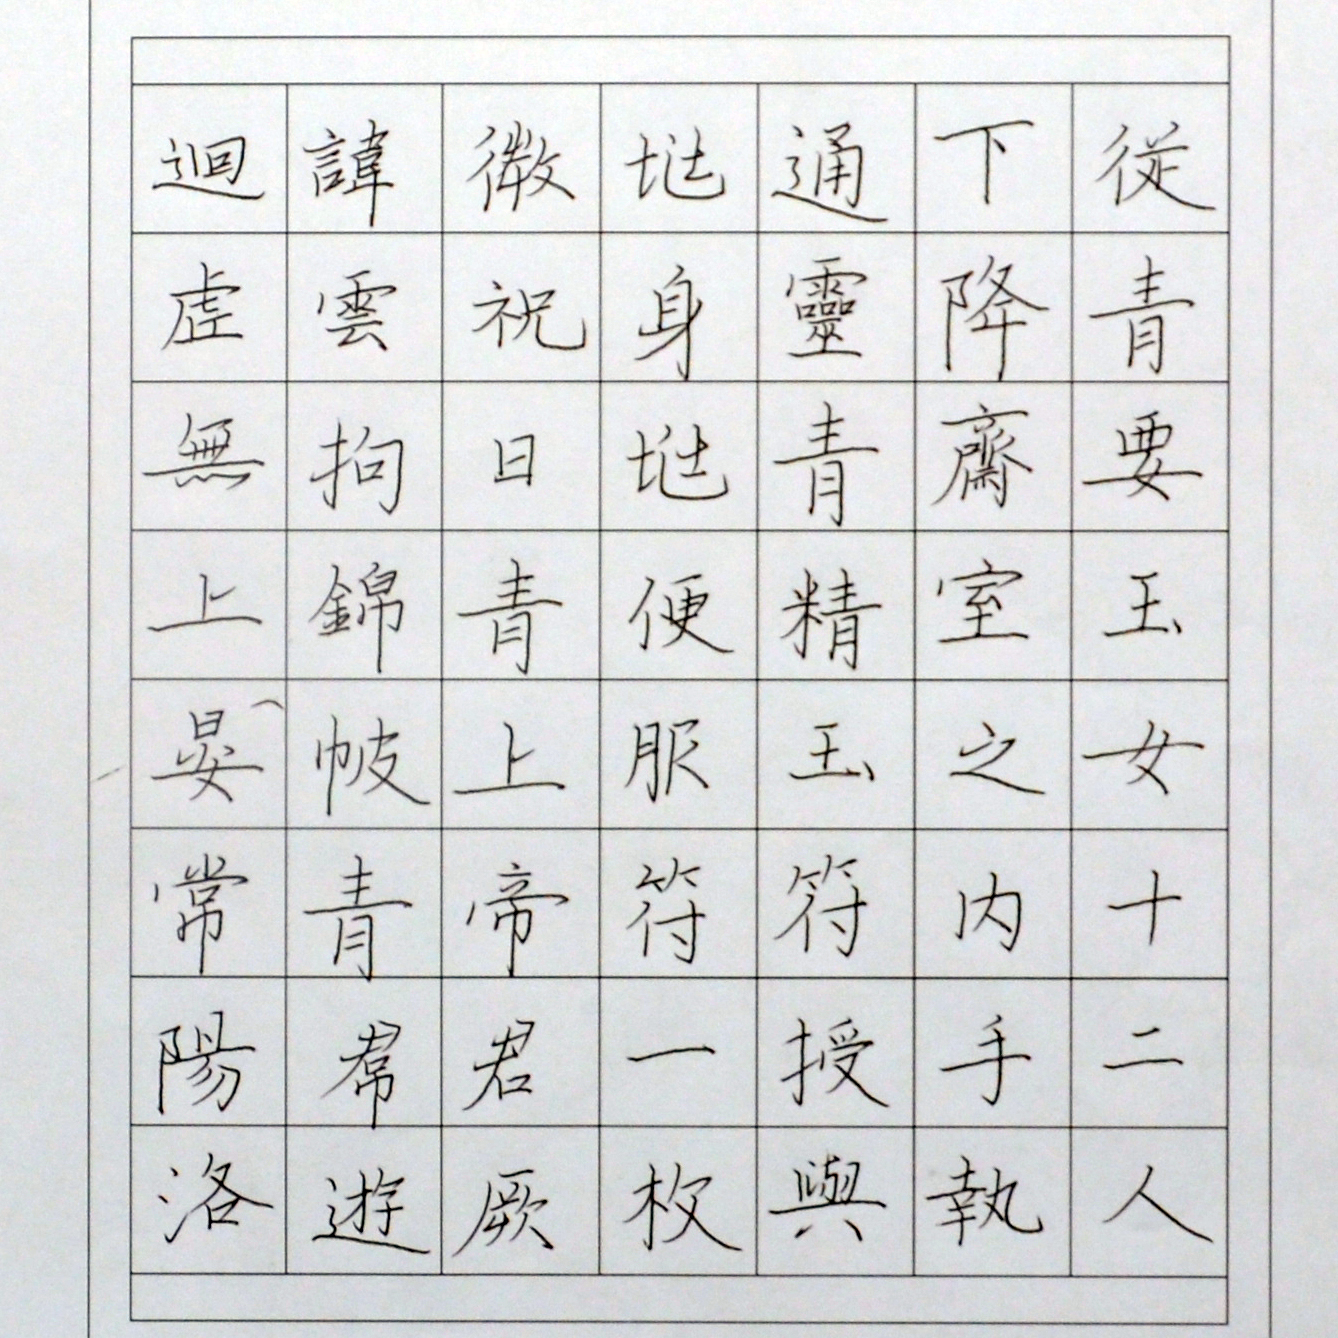 従青要玉女十二人
下降齋室之内手執
通靈青精玉符授與
兆身兆便服符一枚
微祝曰青上帝君厥
諱雲拘錦帔青帬遊
迴虛無上晏常陽洛